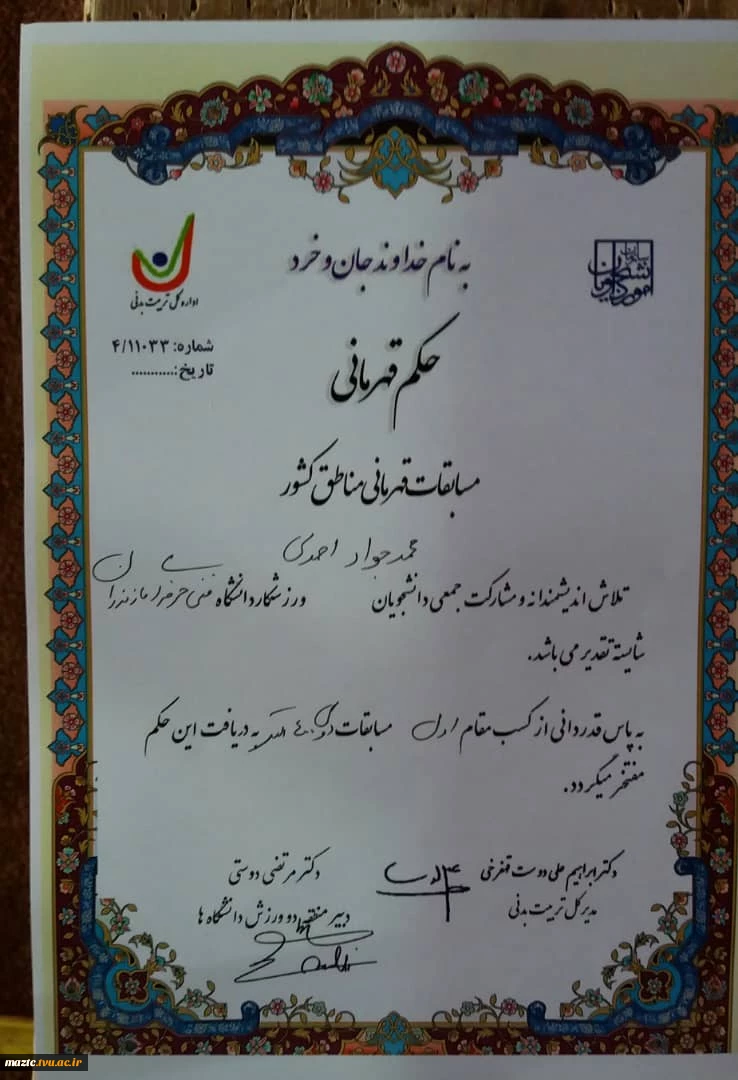 به نام خداوند جان و خرد
سازمان دانشجویان
اداره کل تربیت بدنی
شماره: ۴/۱۱۰۳۳
تاریخ:...........
حکم قهرمانی
مسابقات قهرمانی مناطق کشور
محمد جواد احمدی
تلاش اندیشمندانه و مشارکت جمعی دانشجویان ورزشکار دانشگاه فنی حرفه ای مازندران
شایسته تقدیر می باشد.
به پاس قدردانی از کسب مقام اول مسابقات دوی ۴۰۰ متر به دریافت این حکم
مفتخر میگردد.
دکتر ابراهیم علی دوست قهفرخی
مدیر کل تربیت بدنی
دکتر مرتضی دوستی
دبیر منطقه دو ورزش دانشگاه ها
maztc.tvu.ac.ir